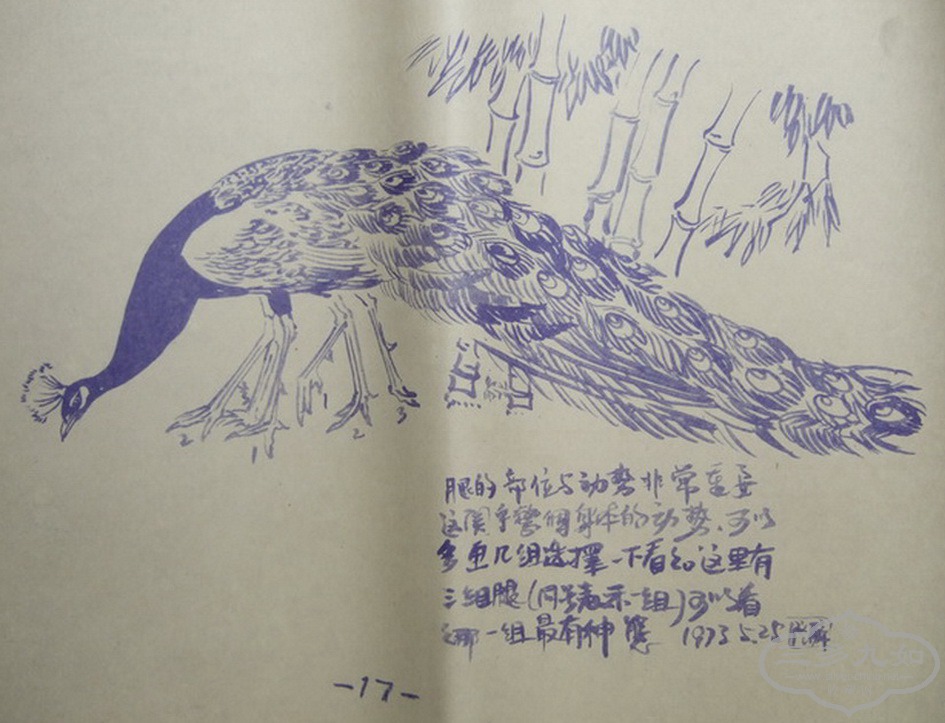 2
1
1
2
3
腿的部位与动势非常重要
这关乎整个身体的动势.可以
多画几组选择一下看.如这里有
三组腿(同号表示一组)可以看
那一组最有神态 1973.5.25
-17-